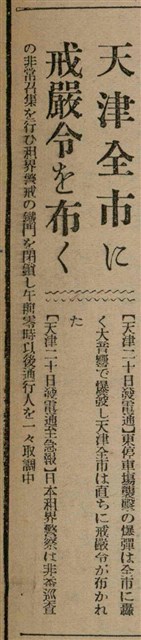 天津全市に
戒嚴令を布く
【天津二十日發電通】東停車場襲擊の爆彈は全市に轟
く大音響で爆發し天津全市は直ちに戒嚴令が布かれ
た
【天津二十日發電通至急報】日本租界警察は非番巡査
の非常召集を行ひ租界警戒の鐵門を閉鎖し午前零時以後通行人を一々取調中